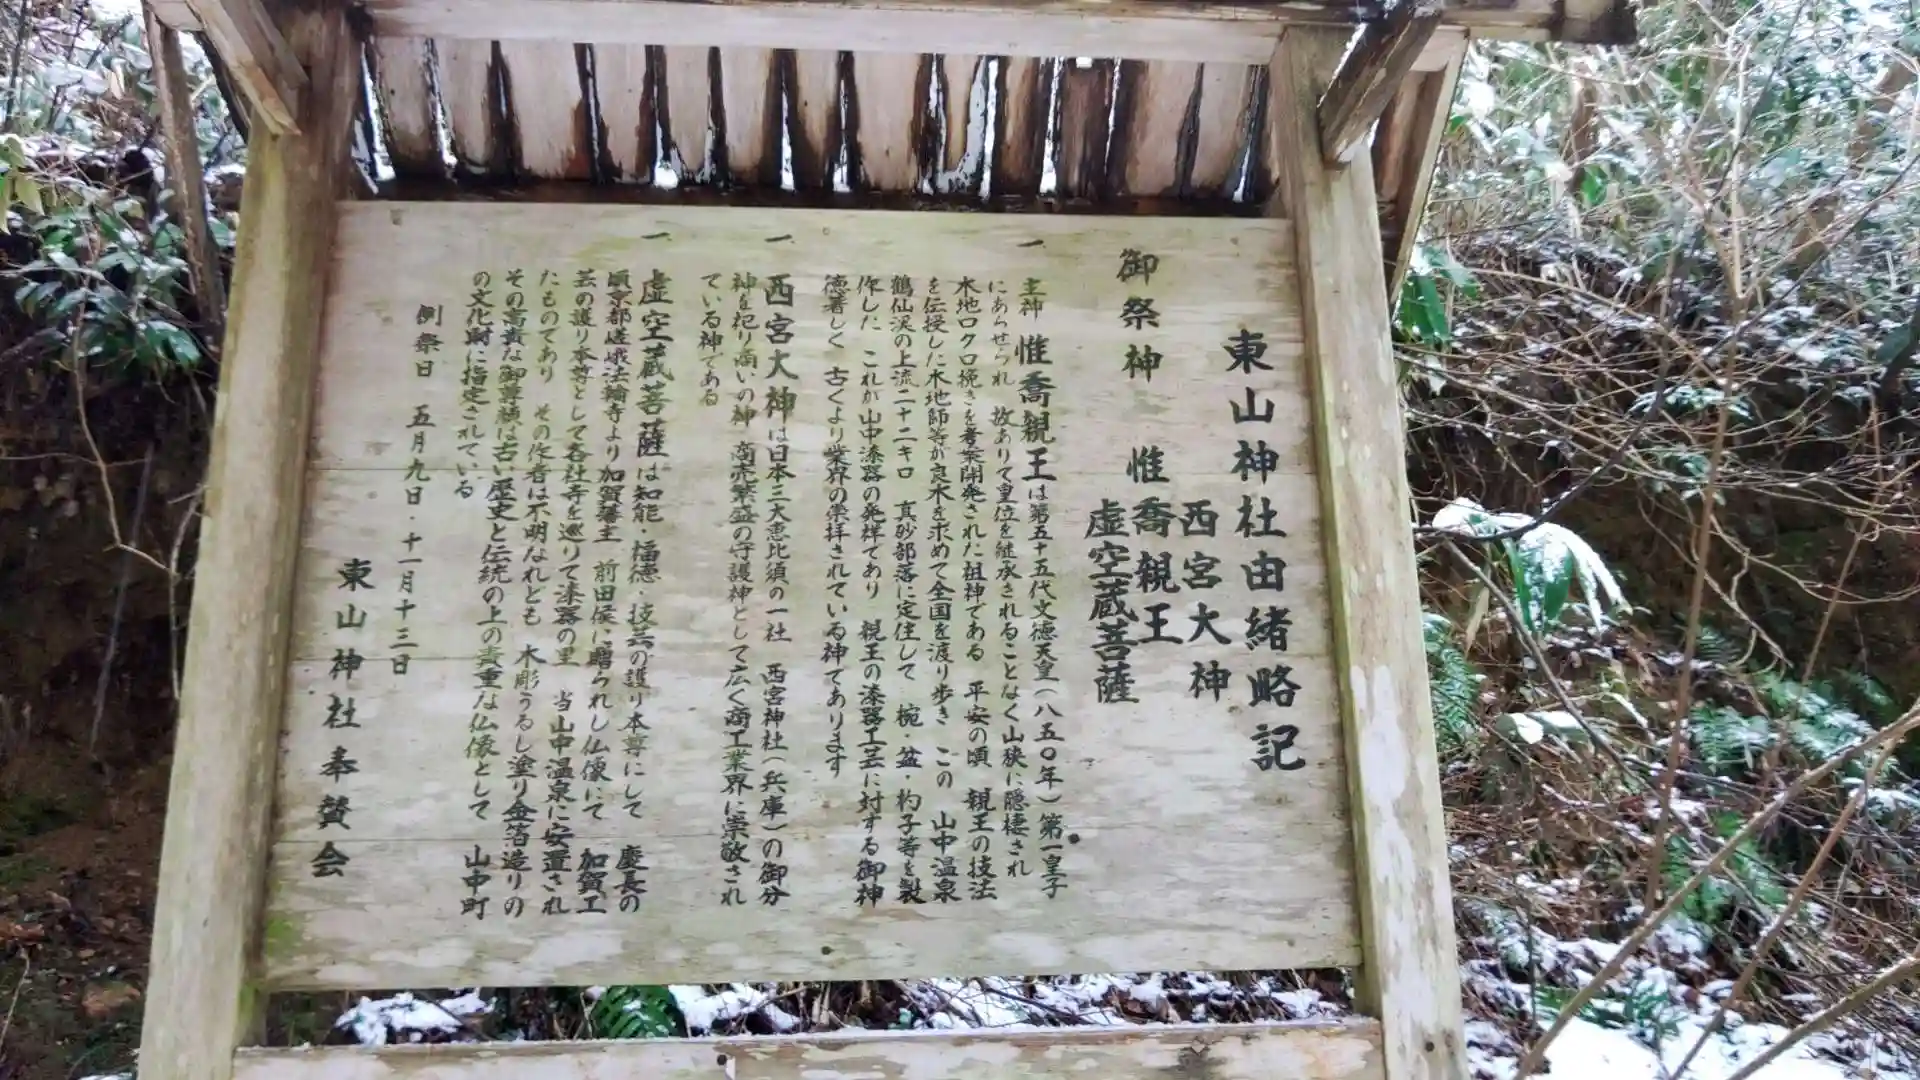 東山神社由緒略記
西宮大神
御祭神 惟喬親王
虚空蔵菩薩
一 主神 惟喬親王は第五十五代文徳天皇(八五〇年)第一皇子
にあらせられ 故ありて皇位を継承されることなく山狭に隠棲され
木地ロクロ挽きを考案開発された祖神である 平安の頃 親王の技法
を伝授した木地師等が良木を求めて全国を渡り歩き この 山中温泉
鶴仙渓の上流二十二キロ 真砂部落に定住して 椀・盆・杓子等を製
作した これが山中漆器の発祥であり 親王の漆器工芸に対する御神
徳著しく 古くより業界の崇拝されている神であります
一 西宮大神は日本三大恵比須の一社 西宮神社(兵庫)の御分
神を祀り商いの神 商売繁盛の守護神として広く商工業界に崇敬され
ている神である
一 虚空蔵菩薩は知能 福徳・技芸の護り本尊にして 慶長の
頃京都嵯峨法輪寺より加賀藩主 前田侯に贈られし仏像にて 加賀工
芸の護り本尊として各社寺を巡りて漆器の里 当山中温泉に安置され
たものであり その作者は不明なれども 木彫うるし塗り金箔造りの
その高貴な御尊顔は古い歴史と伝統の上の貴重な仏像として 山中町
の文化財に指定されている
例祭日 五月九日・十一月十三日
東山神社奉賛会